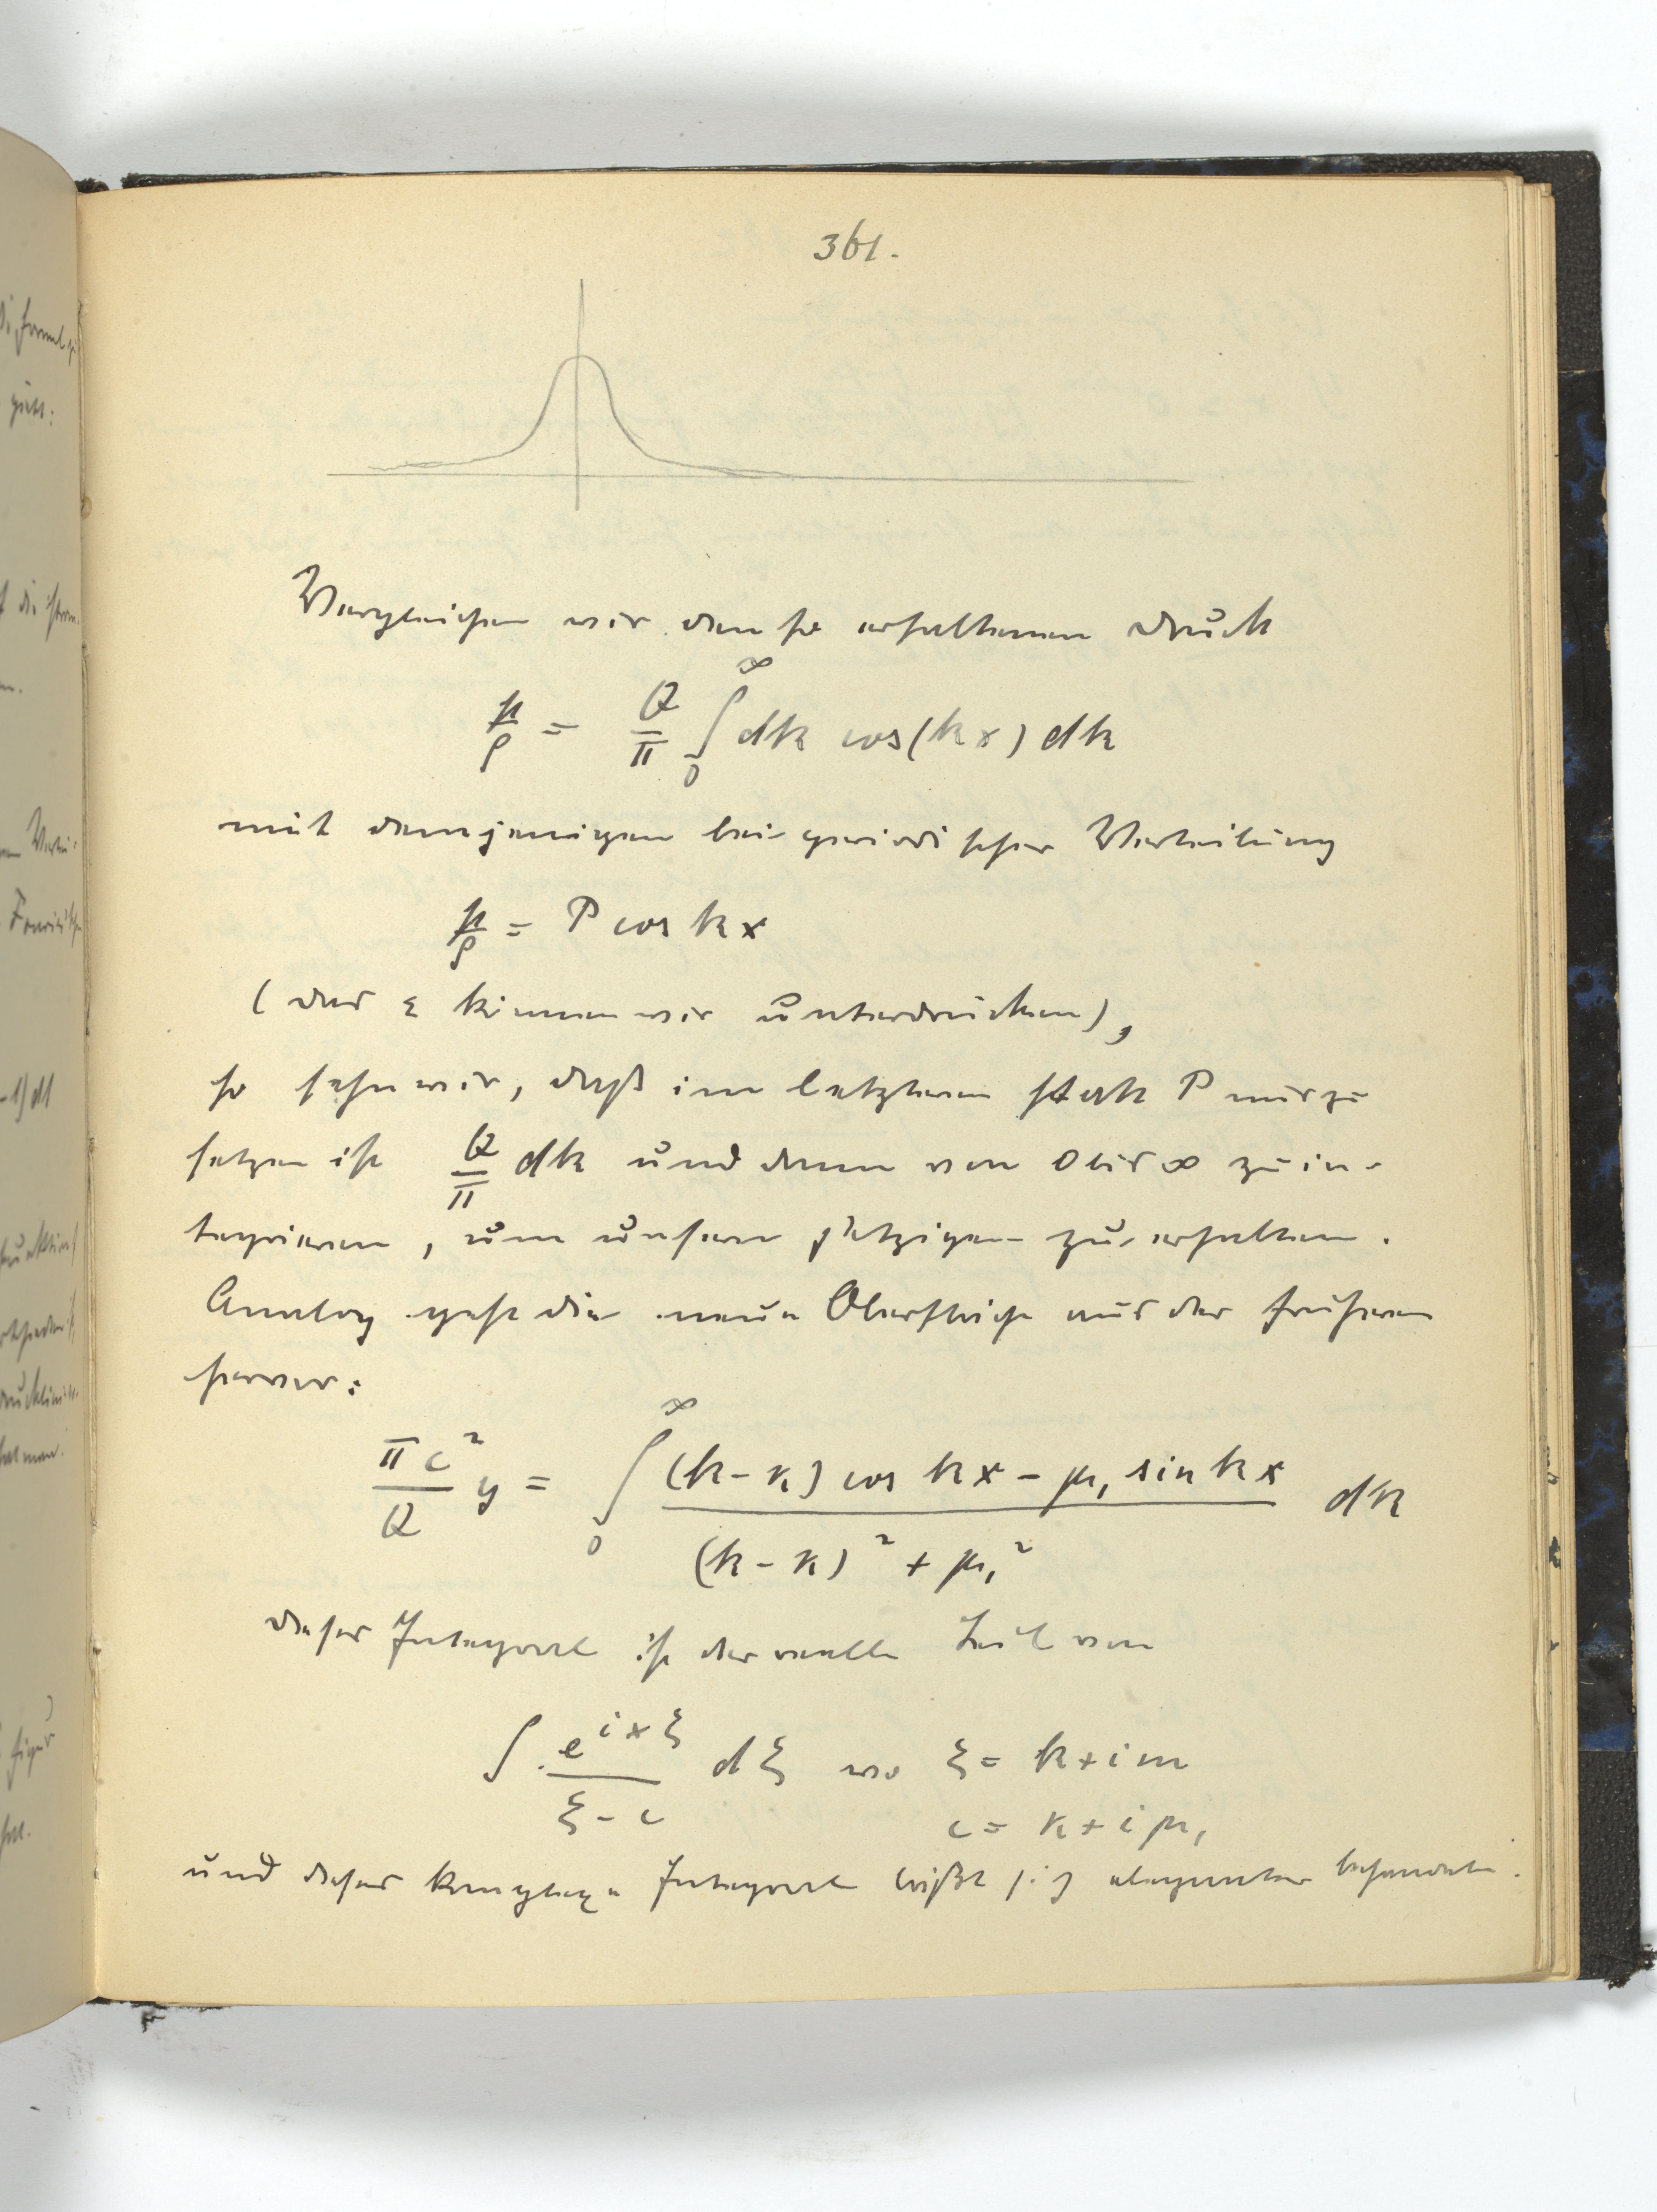 361.
Vergleichen wir den so erhaltenen Druck
p/ρ = Q/π ∫₀^∞ dk cos(kx) dk
mit demjenigen bei periodischer Verteilung
p/ρ = P cos kx
(das ε können wir unterdrücken),
so sehn wir, daß im letzteren statt P nur zu
setzen ist Q/π dk und dann von 0 bis ∞ zu in-
tegrieren, um unsern jetzigen zu erhalten.
Analog geht die neue Oberfläche aus der früheren
hervor:
πc²/Q y = ∫₀^∞ ((k-κ) cos kx - μ₁ sin kx) / ((k-κ)² + μ₁²) dk
Dieses Integral ist der reelle Teil von
∫ e^{ixξ}/(ξ-c) dξ wo ξ = k+im
c = κ+iμ₁
und dieses komplexe Integral läßt sich eleganter behandeln.